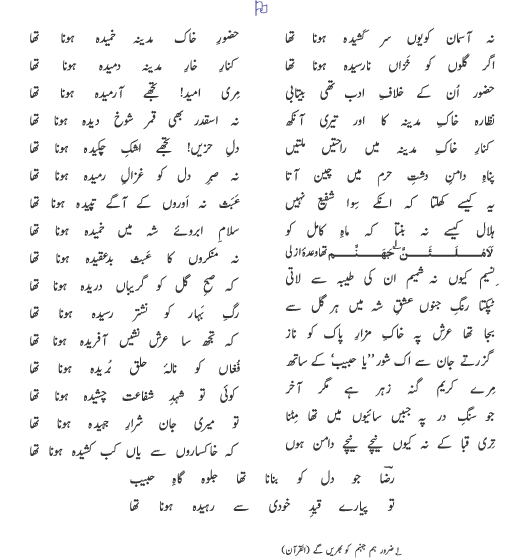 نہ آسمان کو یوں سر کشیدہ ہونا تھا حضورِ خاکِ مدینہ خمیدہ ہونا تھا
اگر گلوں کو خزاں نارسیدہ ہونا تھا کنارِ خارِ مدینہ دمیدہ ہونا تھا
حضور اُن کے خلافِ ادب تھی بیتابی مِری امید! تجھے آرمیدہ ہونا تھا
نظارہ خاکِ مدینہ کا اور تیری آنکھ نہ اسقدر بھی قمر شوخ دیدہ ہونا تھا
کنارِ خاکِ مدینہ میں راحتیں ملتیں دلِ حزیں! تجھے اشکِ چکیدہ ہونا تھا
پناہِ دامنِ دشتِ حرم میں چین آتا نہ صبرِ دل کو غزالِ رمیدہ ہونا تھا
یہ کیسے کھلتا کہ انکے سِوا شفیع نہیں عَبَث نہ اَوروں کے آگے تپیدہ ہونا تھا
ہلال کیسے نہ بنتا کہ ماہِ کامل کو سلامِ ابروئے شہ میں خمیدہ ہونا تھا
لَاَمْلَئَنَّ جَهَنَّمَ تھا وعدۂ ازلی نہ منکروں کا عبث بدعقیدہ ہونا تھا
نسیم کیوں نہ شمیم ان کی طیبہ سے لاتی کہ صبحِ گل کو گریباں دریدہ ہونا تھا
ٹپکتا رنگِ جنوں عشقِ شہ میں ہر گل سے رگِ بہار کو نشتر رسیدہ ہونا تھا
بجا تھا عرش پہ خاکِ مزارِ پاک کو ناز کہ تجھ سا عرش نشیں آفریدہ ہونا تھا
گزرتے جان سے اک شور ”یا حبیب“ کے ساتھ فغاں کو نالۂ حلق بُریدہ ہونا تھا
مِرے کریم گنہ زہر ہے مگر آخر کوئی تو شہدِ شفاعت چشیدہ ہونا تھا
جو سنگِ در پہ جبیں سائیوں میں تھا مِٹنا تو میری جان شرارِ جہیدہ ہونا تھا
تِری قبا کے نہ کیوں نیچے نیچے دامن ہوں کہ خاکساروں سے یاں کب کشیدہ ہونا تھا
رضاؔ جو دل کو بنانا تھا جلوہ گاہِ حبیب
تو پیارے قیدِ خودی سے رہیدہ ہونا تھا
۱؎ ضرور ہم جہنم کو بھریں گے (القرآن)